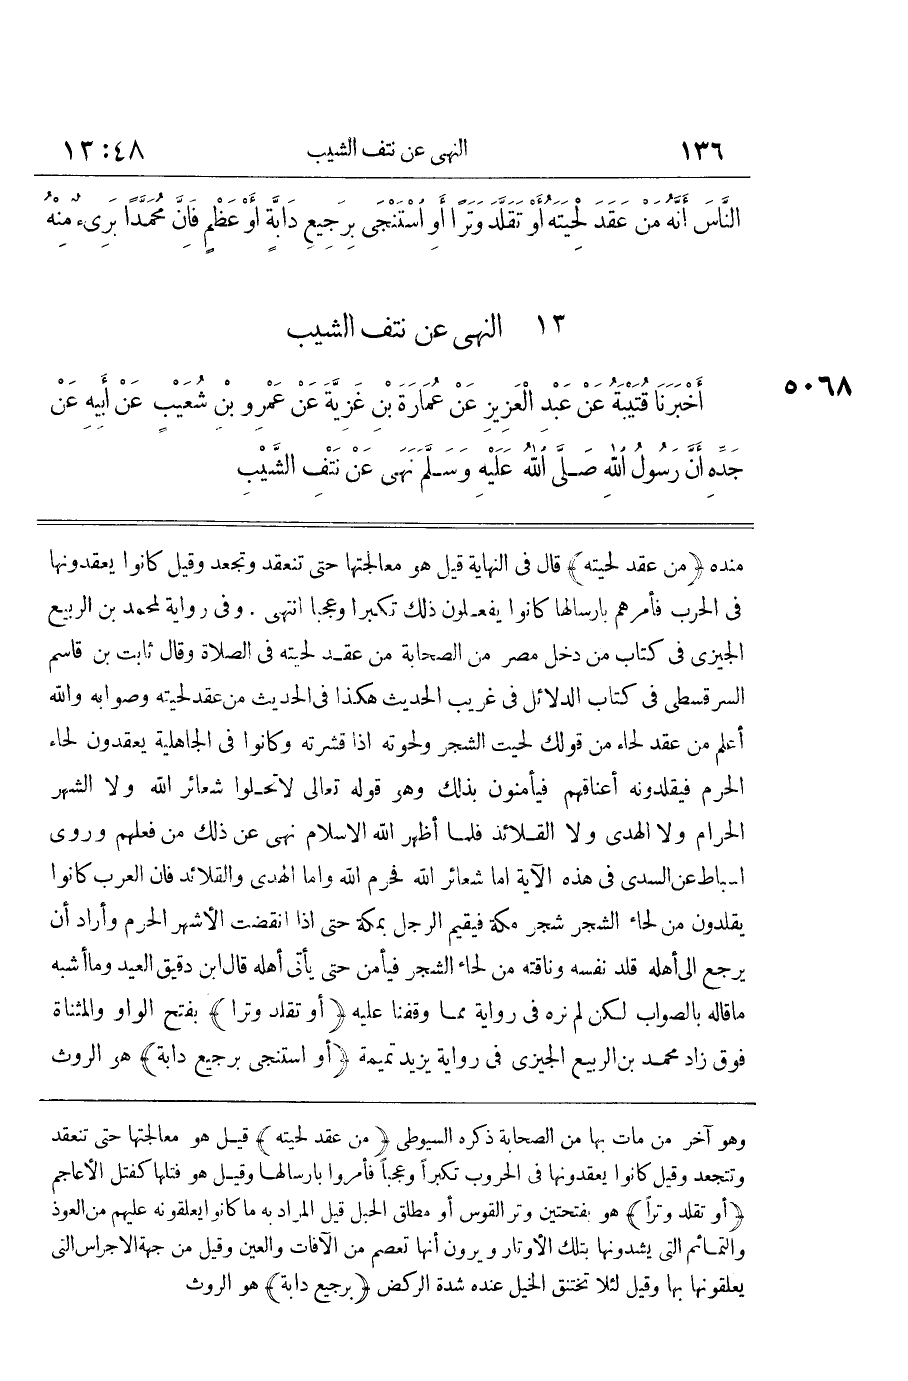 ١٣٦ النهى عن نتف الشيب ٤٨ : ١٣
النَّاسَ أَنَّهُ مَنْ عَقَدَ لِحْيَتَهُ أَوْ تَقَلَّدَ وَتَرًا أَوِ اسْتَنْجَى بِرَجِيعِ دَابَّةٍ أَوْ عَظْمٍ فَإِنَّ مُحَمَّدًا بَرِىءٌ مِنْهُ
١٣ النهى عن نتف الشيب
٥٠٦٨ أَخْبَرَنَا قُتَيْبَةُ عَنْ عَبْدِ الْعَزِيزِ عَنْ عُمَارَةَ بْنِ غَزِيَّةَ عَنْ عَمْرِو بْنِ شُعَيْبٍ عَنْ أَبِيهِ عَنْ
جَدِّهِ أَنَّ رَسُولَ اللهِ صَلَّى اللهُ عَلَيْهِ وَسَلَّمَ نَهَى عَنْ نَتْفِ الشَّيْبِ
منده ﴿من عقد لحيته﴾ قال فى النهاية قيل هو معالجتها حتى تنعقد وتجعد وقيل كانوا يعقدونها
فى الحرب فأمرهم بارسالها كانوا يفعلون ذلك تكبرا وعجبا انتهى . وفى رواية لمحمد بن الربيع
الجيزى فى كتاب من دخل مصر من الصحابة من عقد لحيته فى الصلاة وقال ثابت بن قاسم
السرقسطى فى كتاب الدلائل فى غريب الحديث هكذا فى الحديث من عقد لحيته وصوابه والله
أعلم من عقد لحاء من قولك لحيت الشجر ولحوته اذا قشرته وكانوا فى الجاهلية يعقدون لحاء
الحرم فيقلدونه أعناقهم فيأمنون بذلك وهو قوله تعالى لاتحلوا شعائر الله ولا الشهر
الحرام ولا الهدى ولا القلائد فلما أظهر الله الاسلام نهى عن ذلك من فعلهم وروى
اسباط عن السدى فى هذه الآية اما شعائر الله فحرم الله واما الهدى والقلائد فان العرب كانوا
يقلدون من لحاء الشجر شجر مكة فيقيم الرجل بمكة حتى اذا انقضت الأشهر الحرم وأراد أن
يرجع الى أهله قلد نفسه وناقته من لحاء الشجر فيأمن حتى يأتى أهله قال ابن دقيق العيد وما أشبه
ماقاله بالصواب لكن لم نره فى رواية مما وقفنا عليه ﴿أو تقلد وترا﴾ بفتح الواو والمثناة
فوق زاد محمد بن الربيع الجيزى فى رواية يزيد تميمة ﴿أو استنجى برجيع دابة﴾ هو الروث
وهو آخر من مات بها من الصحابة ذكره السيوطى ﴿من عقد لحيته﴾ قيل هو معالجتها حتى تنعقد
وتتجعد وقيل كانوا يعقدونها فى الحروب تكبراً وعجباً فأمروا بارسالها وقيل هو فتلها كفتل الأعاجم
﴿أو تقلد وتراً﴾ هو بفتحتين وتر القوس أو مطلق الحبل قيل المراد به ما كانوا يعلقونه عليهم من العوذ
والتمائم التى يشدونها بتلك الأوتار ويرون أنها تعصم من الآفات والعين وقيل من جهة الاجراس التى
يعلقونها بها وقيل لئلا تختنق الخيل عنده شدة الركض ﴿برجيع دابة﴾ هو الروث